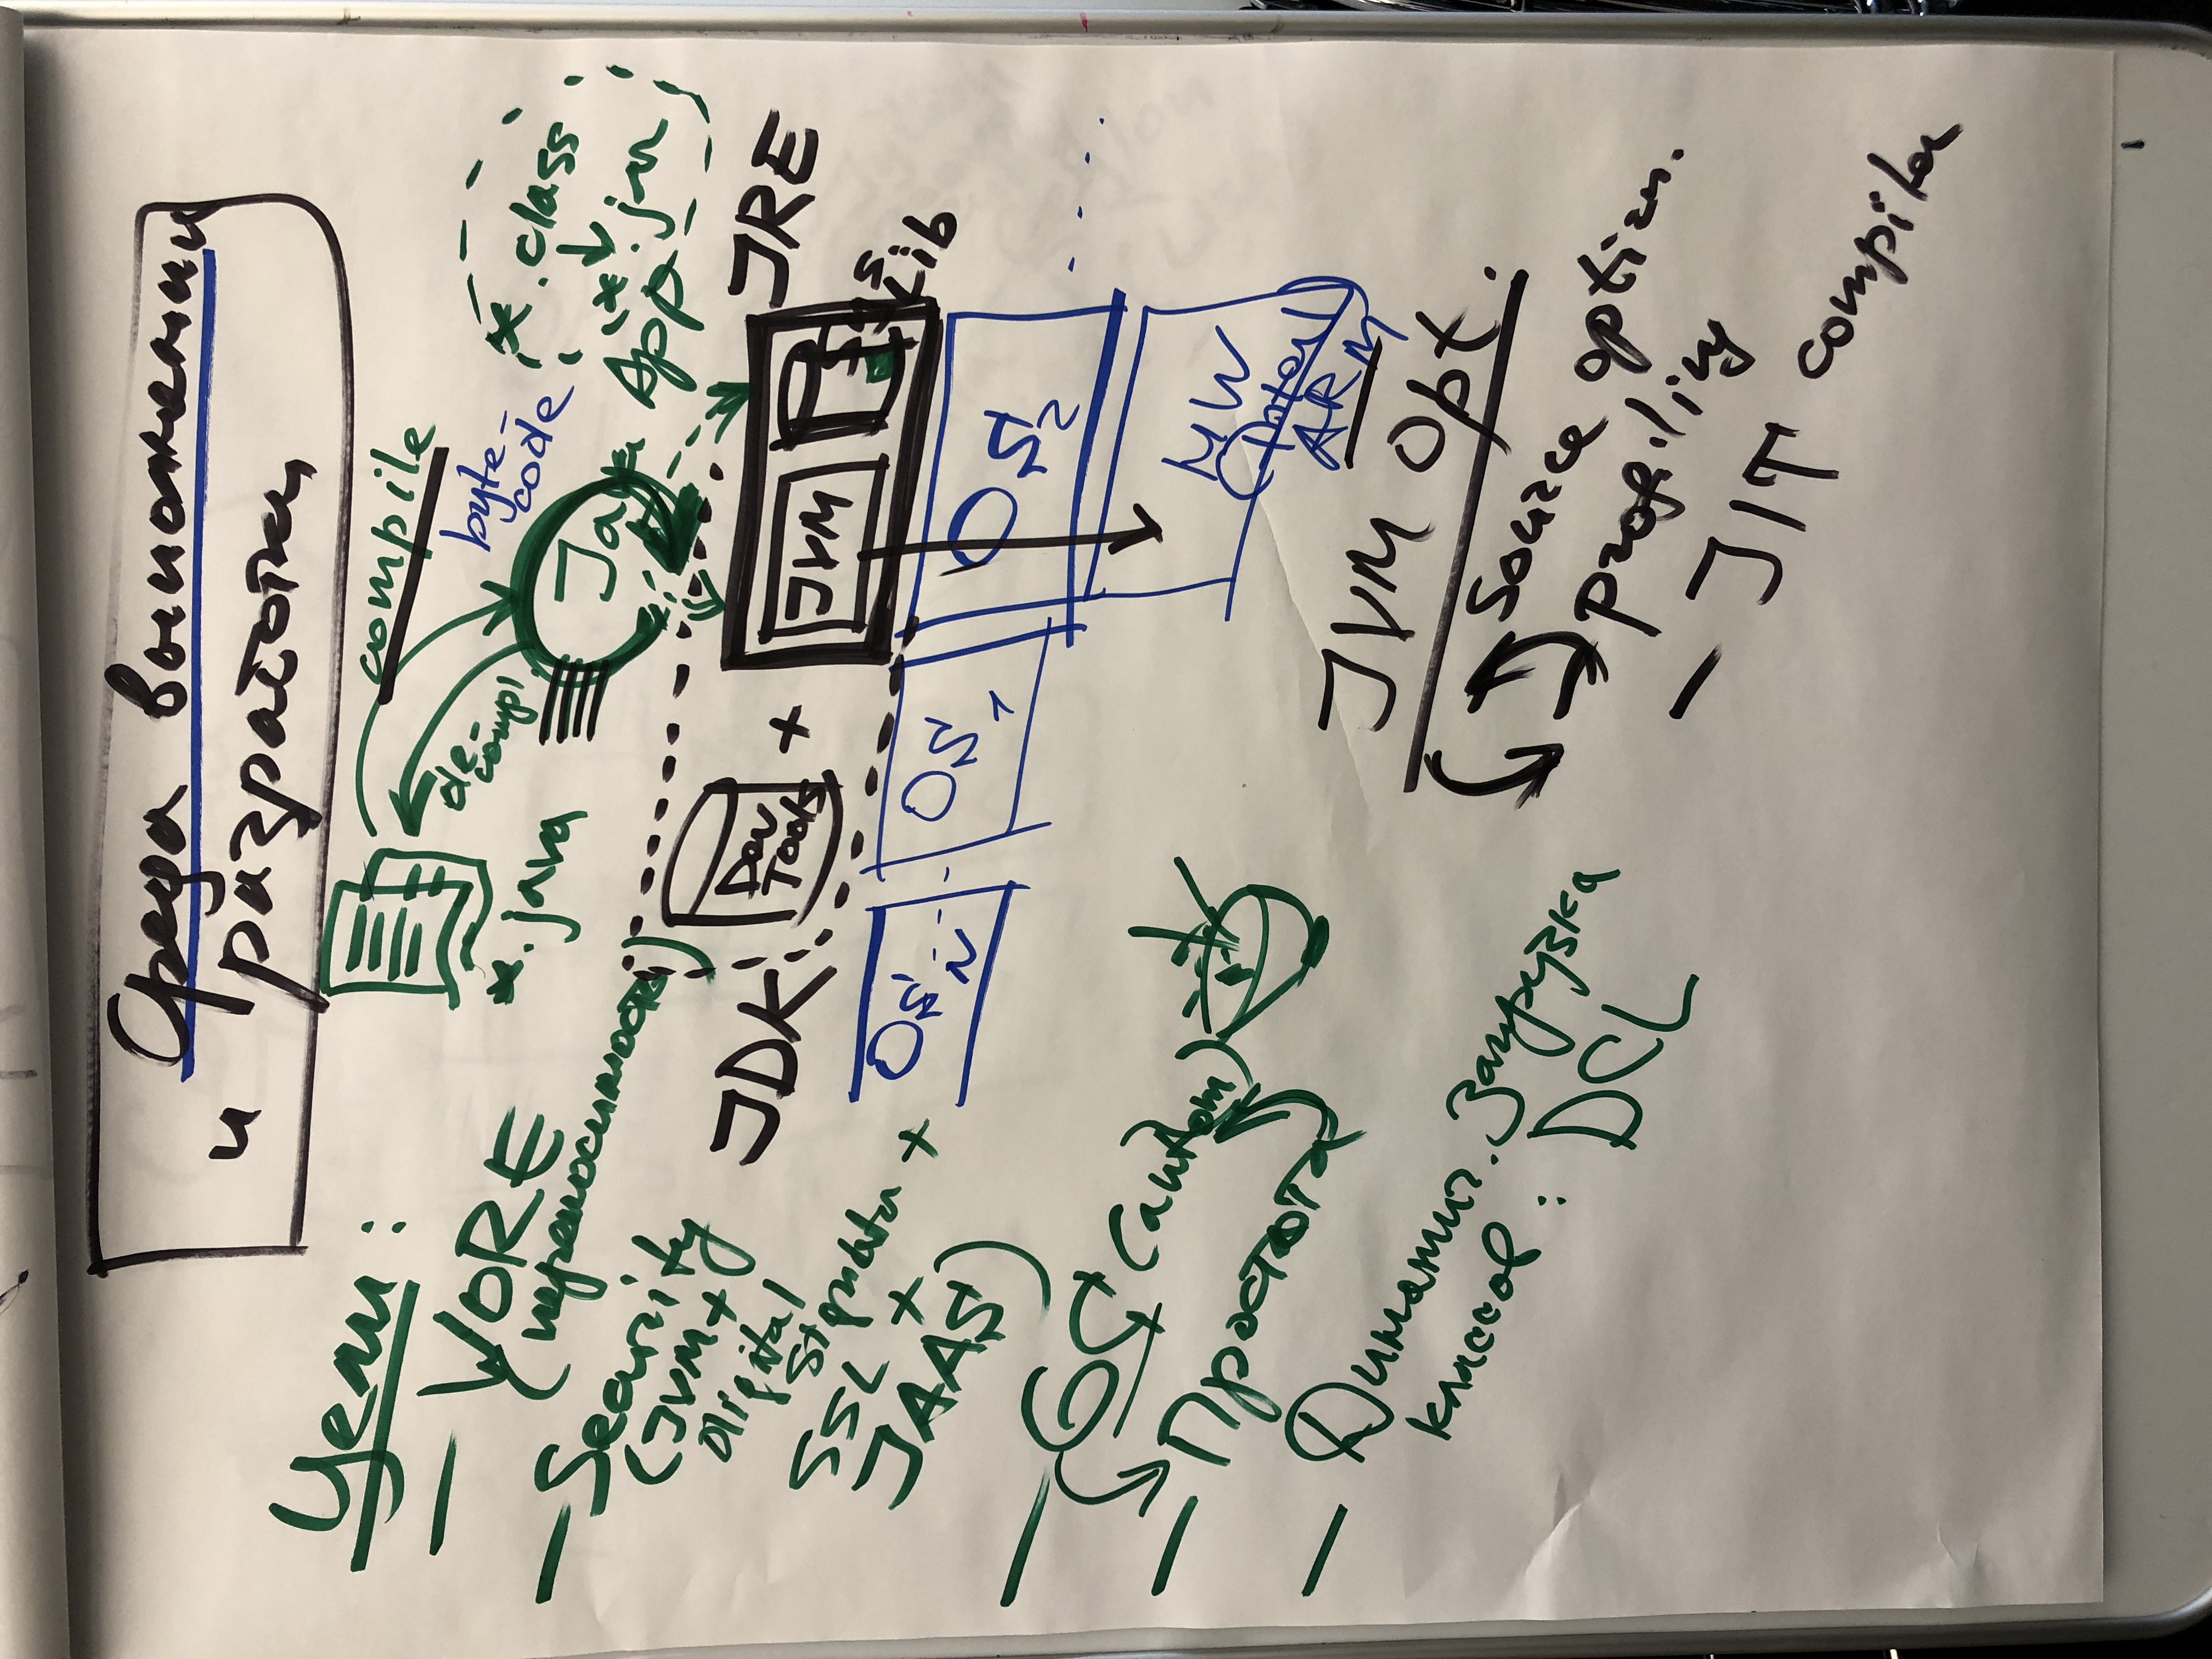 Среда выполнения
и разработки
Цели:
- WORE
(переносимость)
- Security
(JVM+
Digital
Signatur +
SSL +
JAAS)
- GC (автом)
- Простота
- Динамич. Загрузка
классов:
DCL
compile
de-
compl.
*.java
byte-
code
*.class
*.jar
Java App
JDK
Dev
Tools
+
JVM
JRE
Lib
OS N
OS 1
OS 2
....
HW
ARM
JVM Opt.
Source optim.
- profiling
- JIT compiler